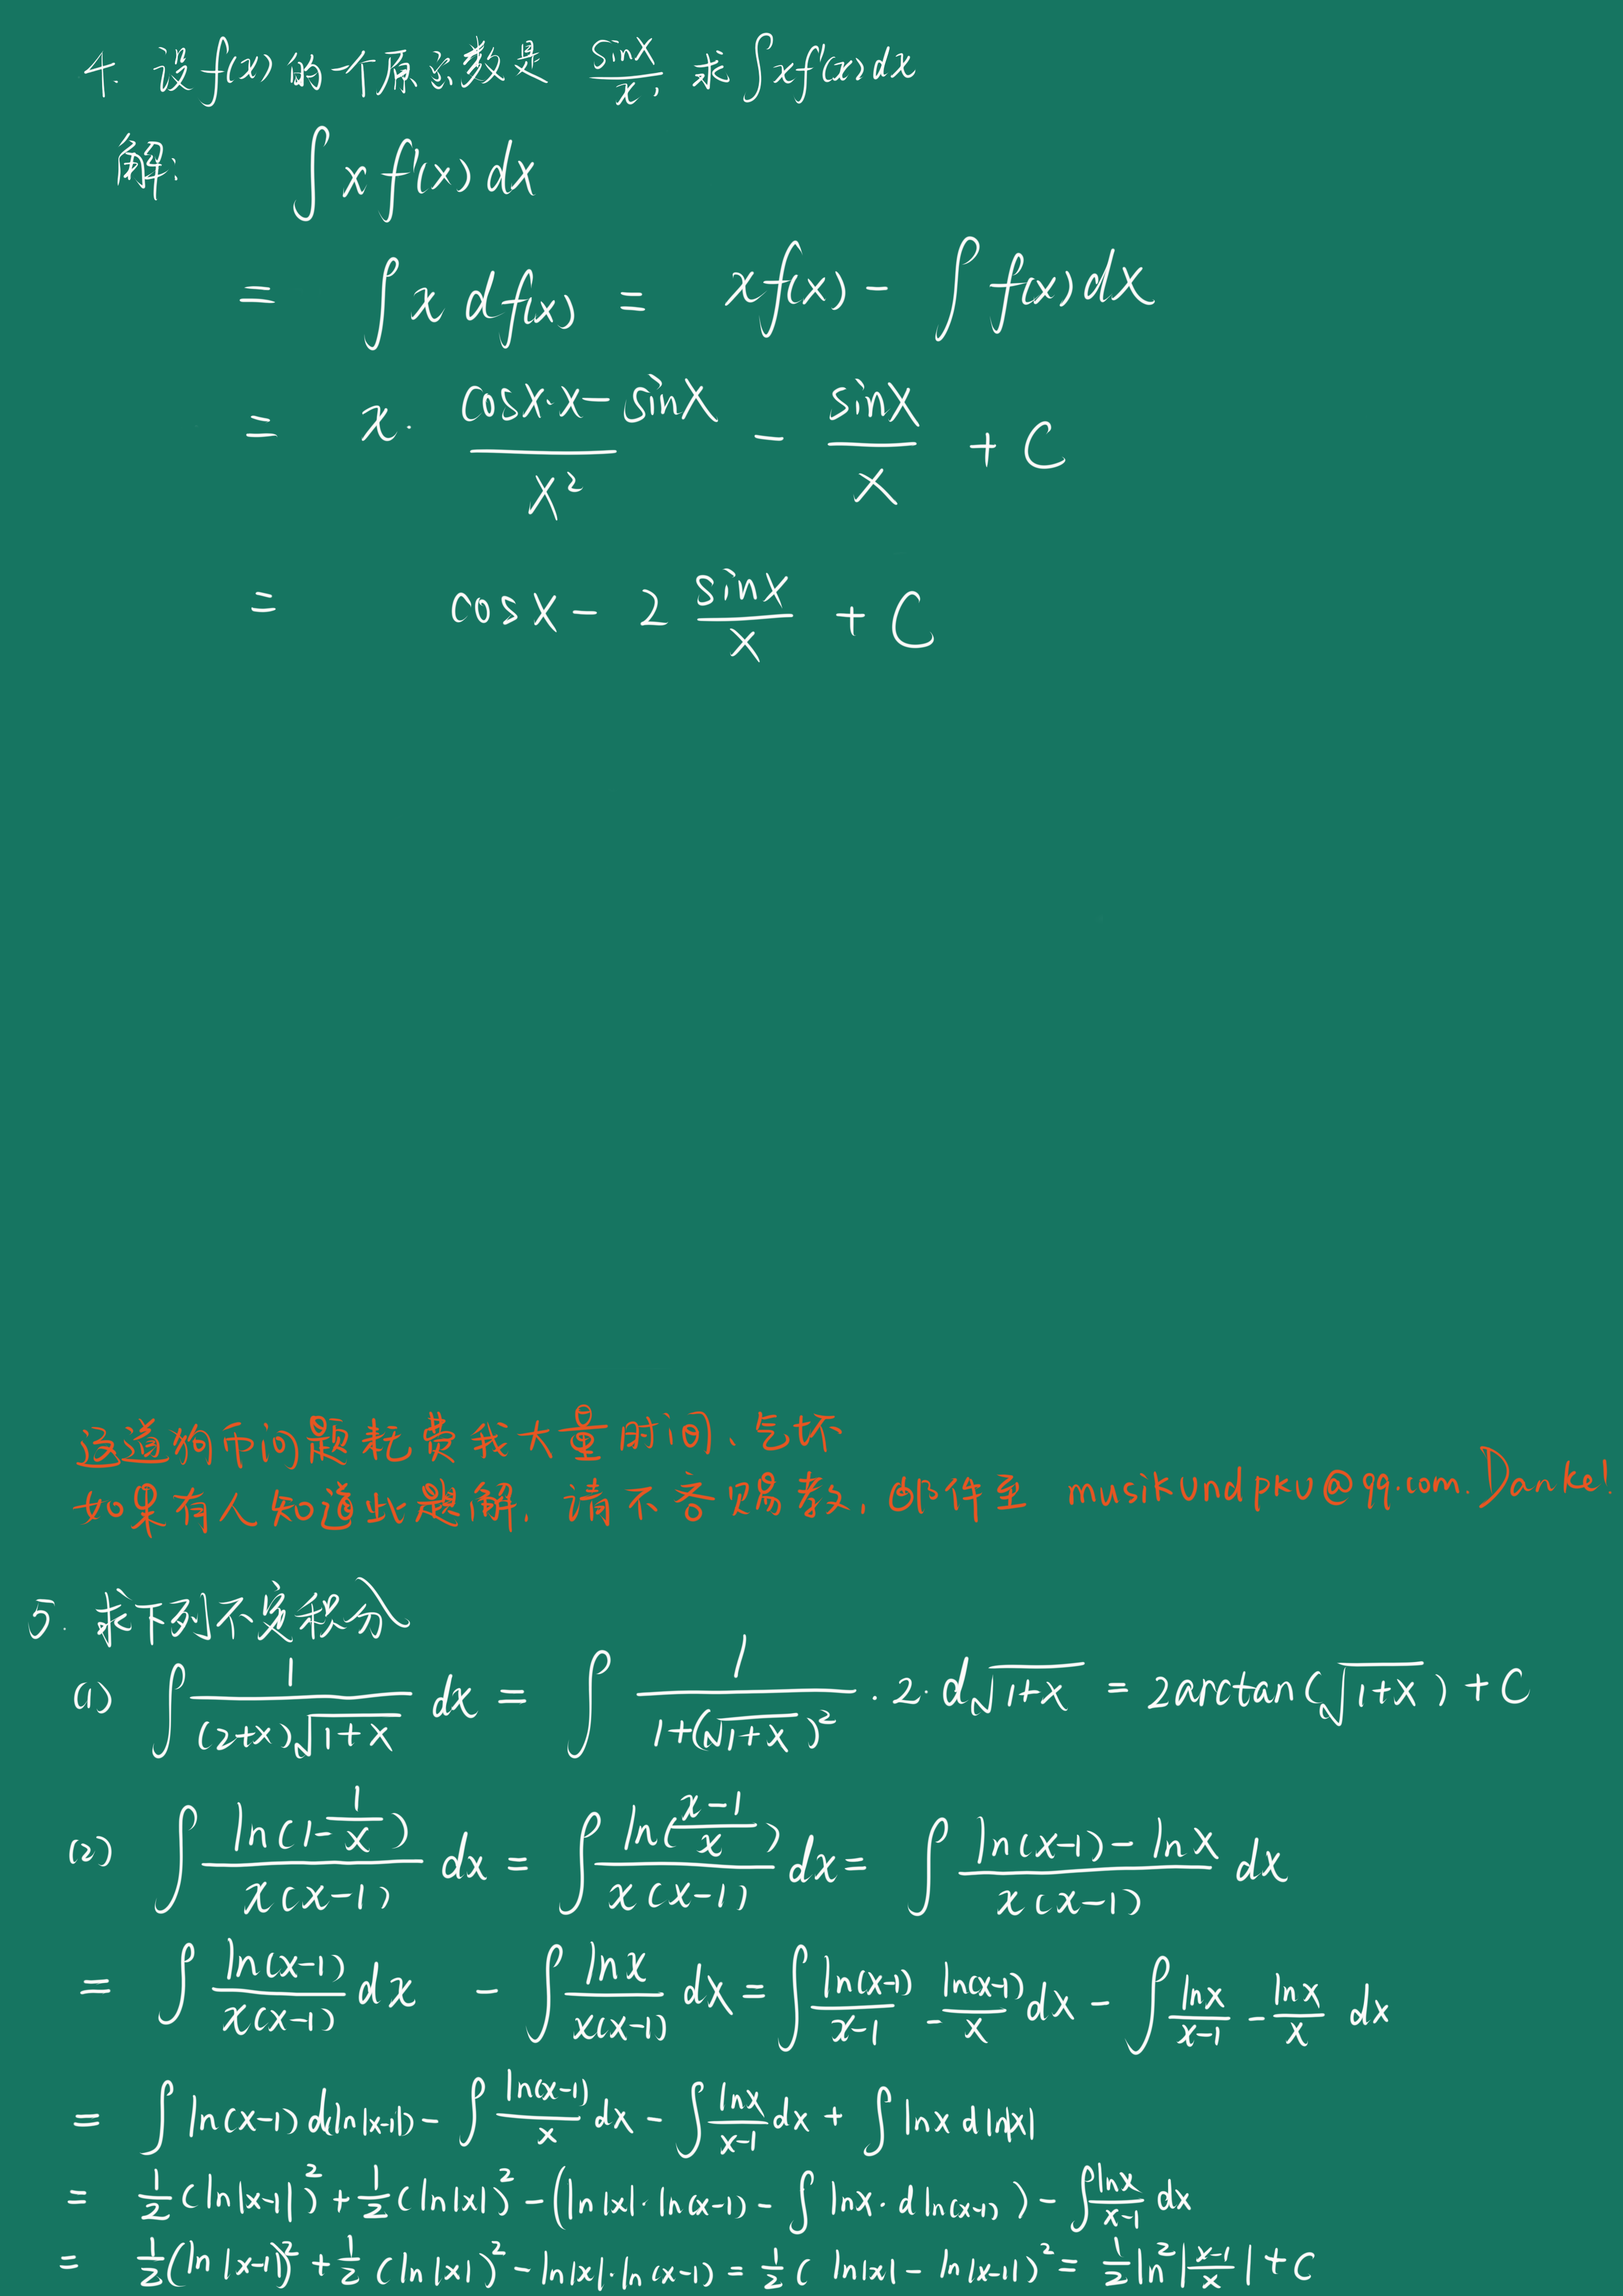 4. 设f(x)的一个原函数是 sinx/x, 求∫xf'(x)dx
解: ∫xf'(x)dx
= ∫x df(x) = xf(x) - ∫f(x)dx
= x· (cosx·x-sinx)/x² - sinx/x + C
= cosx - 2 sinx/x + C
这道狗币问题耗费我大量时间、气坏
如果有人知道此题解, 请不吝赐教, 邮件至 musikundpku@qq.com. Danke!
5. 求下列不定积分
(1) ∫ 1/((2+x)√(1+x)) dx = ∫ 1/(1+(√(1+x))²) ·2· d√(1+x) = 2arctan(√(1+x)) + C
(2) ∫ ln(1-1/x)/(x(x-1)) dx = ∫ ln((x-1)/x)/(x(x-1)) dx = ∫ (ln(x-1)-lnx)/(x(x-1)) dx
= ∫ ln(x-1)/(x(x-1)) dx - ∫ lnx/(x(x-1)) dx = ∫ ln(x-1)/(x-1) - ln(x-1)/x dx - ∫ lnx/(x-1) - lnx/x dx
= ∫ ln(x-1) d(ln|x-1|) - ∫ ln(x-1)/x dx - ∫ lnx/(x-1) dx + ∫ lnx d ln|x|
= 1/2 (ln|x-1|)² + 1/2 (ln|x|)² - (ln|x|·ln(x-1) - ∫ lnx·d ln(x-1)) - ∫ lnx/(x-1) dx
= 1/2 (ln|x-1|)² + 1/2 (ln|x|)² - ln|x|·ln(x-1) = 1/2 (ln|x| - ln|x-1|)² = 1/2 ln²|(x-1)/x| + C